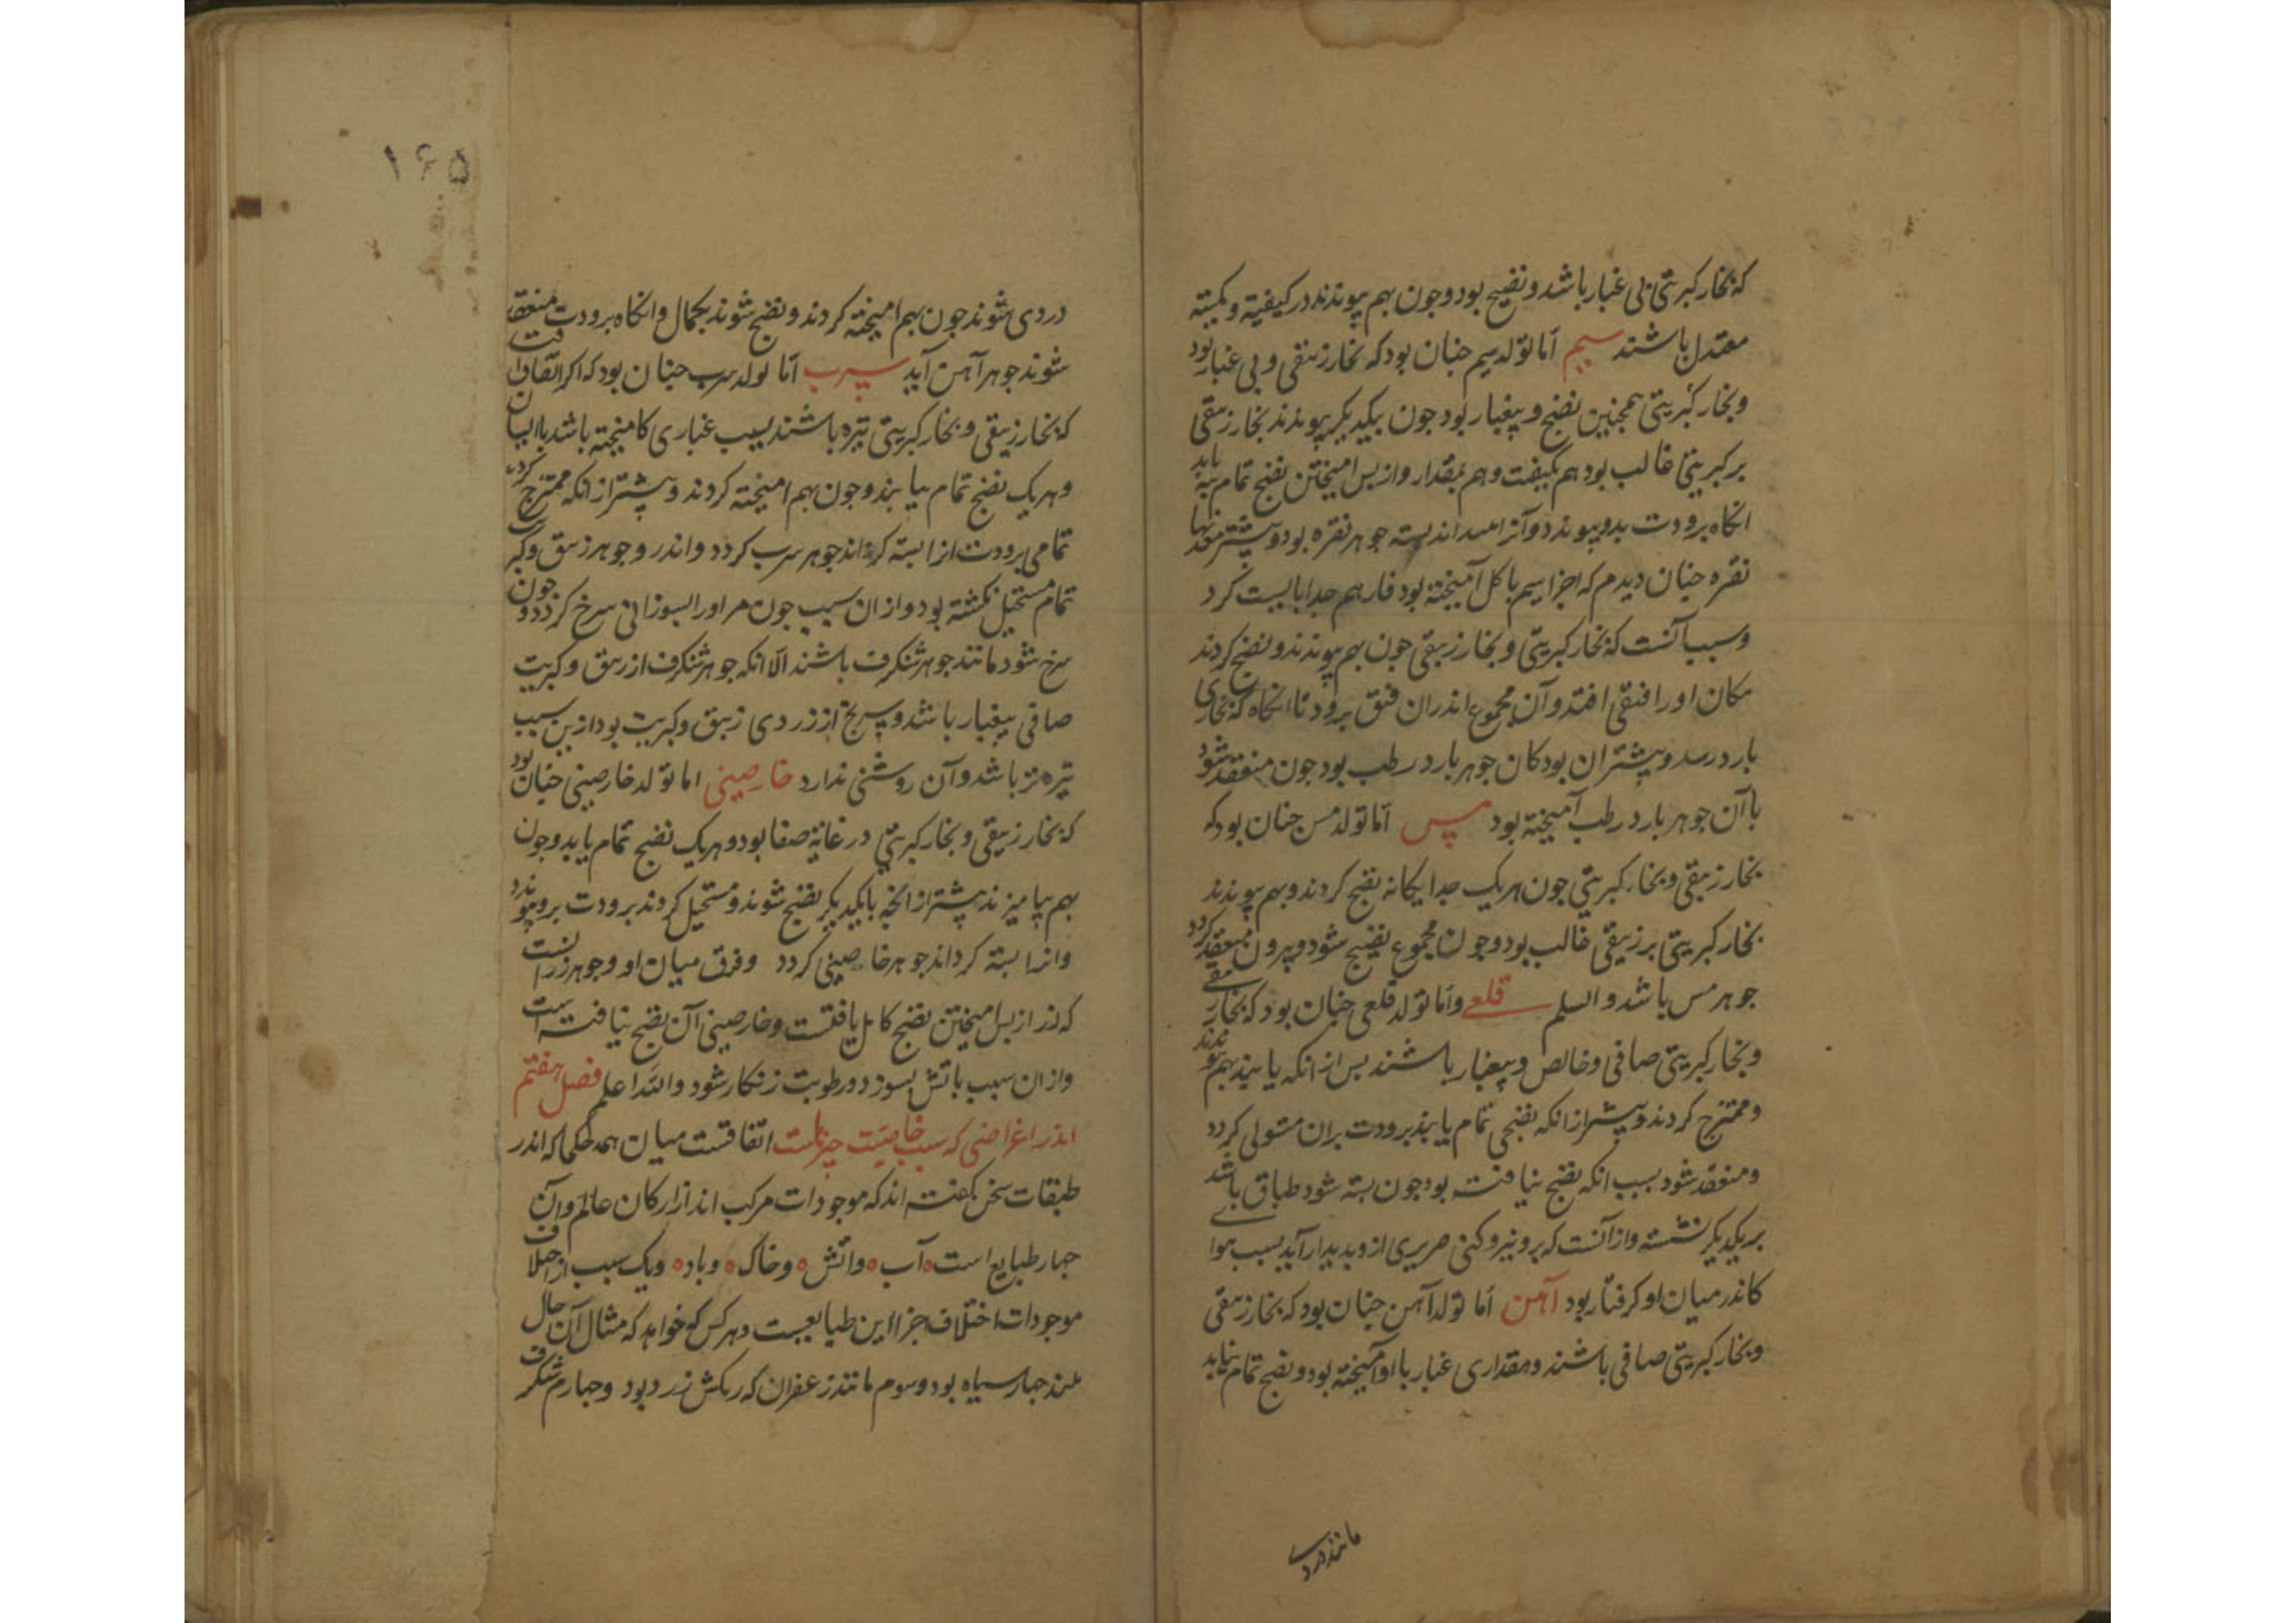 که بخار کبریتی بی غبار باشد و نضیج بود و چون بهم پیوندند در کیفیة و کمیته
معتدل باشند سیم اما تولد سیم چنان بود که بخار زیبقی و بی غبار بود
و بخار کبریتی همچنین نضیج و بیغبار بود چون بیکدیکر پیوندند بخار زیبقی
بر کبریتی غالب بود هم بکیفیت و هم بمقدار و از پس امیختن نضج تمام یابد
انکاه برودت بدو پیوندد و آنرا بسته جوهر نقره بود و بیشتر معدنها
نقره چنان دیدم که اجزا سیم با کل آمیخته بود فا از هم جدا بایست کرد
و سبب آنست که بخار کبریتی و بخار زیبقی چون بهم پیوندند و نضج کردند
مکان او را فتقی افتد و آن مجموع اندران فتق برود تا انکاه که بخاری
بارد رسد و بیشتر ان بود کان جوهر بارد رطب بود چون منعقد شود
با آن جوهر بارد رطب آمیخته بود مس اما تولد مس چنان بود که
بخار زیبقی و بخار کبریتی چون هر یک جدایکانه نضج کردند و بهم پیوندند
بخار کبریتی بر زیبقی غالب بود و چون مجموع نضیج شود و بیرون منعقد کردد
جوهر مس باشد والسلم قلعی و اما تولد قلعی چنان بود که بخار زیبقی
و بخار کبریتی صافی و خالص و بیغبار باشند پس از انکه یابند بهم پیوندند
و ممتزج کردند و پیشتر از انکه نضجی تمام یابند برودت بران مستولی کردد
و منعقد شود بسبب انکه نضج نیافته بود چون بسته شود طباق باشد
بر یکدیکر نشسته و از آنست که برو نیرو کنی صریری ازو بدیدار آید بسبب هوای
کاندر میان او کرفتار بود آهن اما تولد آهن چنان بود که بخار زیبقی
و بخار کبریتی صافی باشند و مقداری غبار با او آمیخته بود و نضج تمام نیابد
مانند دردی
۱۶۵
دردی شوند چون بهم امیخته کردند و نضج شوند بکمال و انکاه برودت منعقد
شوند جوهر آهن آید سرب اما تولد سرب چنان بود که اکر اتفاق افتد
که بخار زیبقی و بخار کبریتی تیره باشند بسبب غباری کامیخته باشد با ایشان
و هر یک نضج تمام بیابند و چون بهم امیخته کردند و پیشتر از انکه ممتزج کردد
تمامی برودت انرا بسته کرداند جوهر سرب کردد و اندر و جوهر زیبق و کبریت
تمام مستحیل نکشته بود و از ان سبب چون مر او را بسوزانی سرخ کردد و چون
سرخ شود مانند جوهر شنکرف باشند الا انکه جوهر شنکرف از زیبق و کبریت
صافی بیغبار باشد و سرنج از دردی زیبق و کبریت بود ازین سبب
تیره تر باشد و آن روشنی ندارد خارصینی اما تولد خارصینی چنان بود
که بخار زیبقی و بخار کبریتی در غایة صفا بود و هر یک نضج تمام یابد و چون
بهم بیامیزند پیشتر از انچه با یکدیکر نضج شوند و مستحیل کردند برودت برو پیوندد
و انرا بسته کرداند جوهر خارصینی کردد و فرق میان او و جوهر زر آنست
که زر از پس امیختن نضج کامل یافتست و خارصینی آن نضج نیافته است
و از ان سبب باتش بسوزد و رطوبت زنکار شود والله اعلم فصل هفتم
اندر اغراضی که سبب خاصیت چیزهاست اتفاقست میان همه حکما که اندر
طبقات سخن کفته اند که موجودات مرکب اند از ارکان عالم و آن
چهار طبایع است ٥ آب ٥ و اتش ٥ و خاک ٥ و باد ٥ و یک سبب از اختلاف
موجودات اختلاف اجزا این طبایعست و هر کس که خواهد که مثال آن حال
چهار سیاه بود و سوم مانند زعفران که رنکش زرد بود و چهارم شنکرف